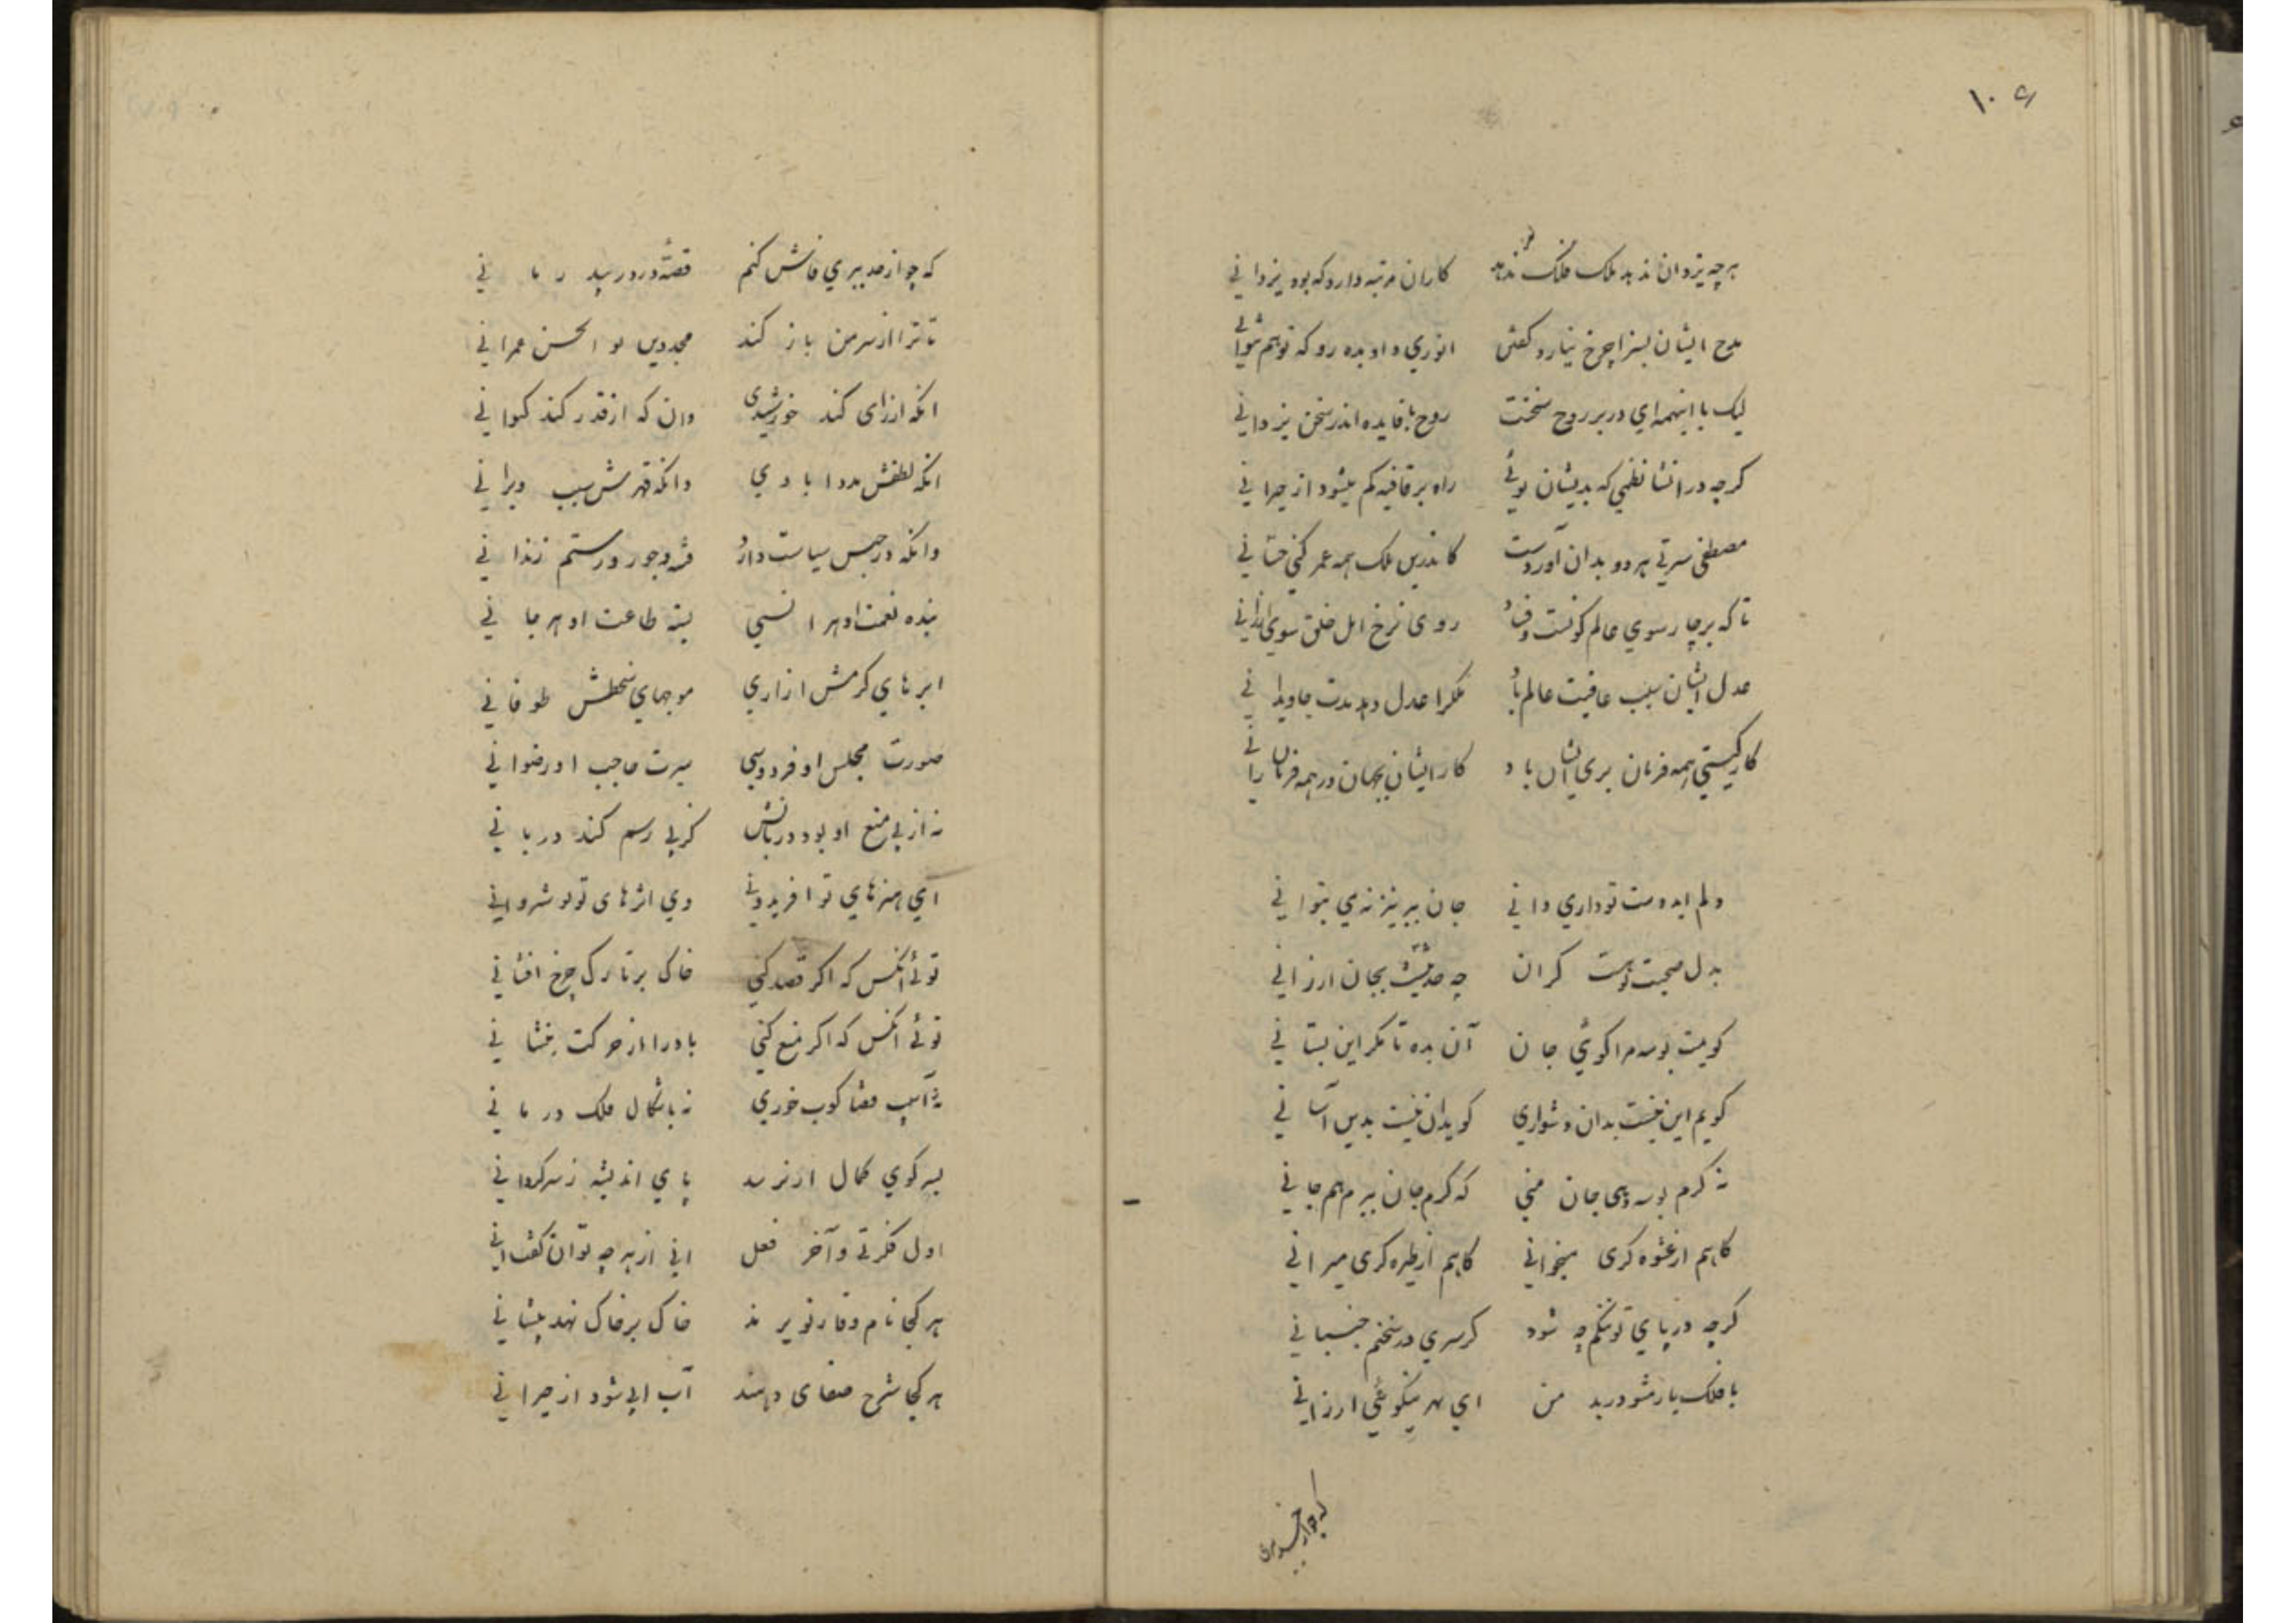 ۱۰۶
هرچه یزدان ندهد ملک فلک ندهد کاران مرتبه دارد که بود یزدانی
مدح ایشان بسزا چرخ نیارد کفتن انوری داد بده رو که تو هم نتوانی
لیک با اینهمه ای در بر روح سخنت روح با فایده اندر سخن یزدانی
کرچه در انشا نظمی که بدیشان پوئی راه بر قافیه کم میشود از حیرانی
مصطفی سیرتی هر دو بدان آوردست کاندرین ملک همه عمر کنی حسّانی
تا که بر چار سوی عالم کونست و فساد روی نرخ امل خلق سوی ارزانی
عدل ایشان سبب عافیت عالم باد ملکرا عدل دهد مدت جاویدانی
کار کیتی همه فرمان بری ایشان باد کار ایشان بجهان در همه فرمان رانی
دلم ایدوست تو داری دانی جان ببر نیز نه می بتوانی
بدل صحبت تو نیست کران چه حدیثیست بجان ارزانی
کویمت بوسه مرا کوئی جان آن بده تا مکر این بستانی
کویم این نیست بدان دشواری کوید آن نیست بدین آسانی
نه کرم بوسه دهی جان منی که کرم جان ببرم هم جانی
کاهم از عشوه کری میخوانی کاهم از طیره کری میرانی
کرچه در پای تو افکنم چه شود کر سری در سخنم جنبانی
با فلک یار مشو در بد من ای بهر نیکوئی ارزانی
که چو از حد ببری فاش کنم قصه درد ز بیدرمانی
تا ترا از سر من باز کند مجد دین بو الحسن عمرانی
انکه از رای کند خورشیدی وان که از قدر کند کیوانی
انکه لطفش مدد ابادی وانکه قهرش سبب ویرانی
وانکه در حبس سیاست دارد فتنه و جور و ستم زندانی
بنده نعمت او هر انسی بسته طاعت او هر جانی
ابرهای کرمش ازاری موجهای سخطش طوفانی
صورت مجلس او فردوسی سیرت حاجب او رضوانی
نه از پی منع او بود دربانش کز پی رسم کند دربانی
ای هنرهای تو افریدونی وی اثرهای تو نوشروانی
توئی انکس که اکر قصد کنی خاک بر تارک چرخ افشانی
توئی انکس که اکر منع کنی باد را از حرکت بنشانی
نه باسیب قضا کوب خوری نه باشکال فلک در مانی
بسر کوی کمال ار نرسد پای اندیشه ز سرکردانی
اول فکرتی و آخر فعل انی از هرچه توان کفت انی
هر کجا نام وقار تو برند خاک بر خاک نهد پیشانی
هر کجا شرح صفای دهند آب ابی شود از حیرانی